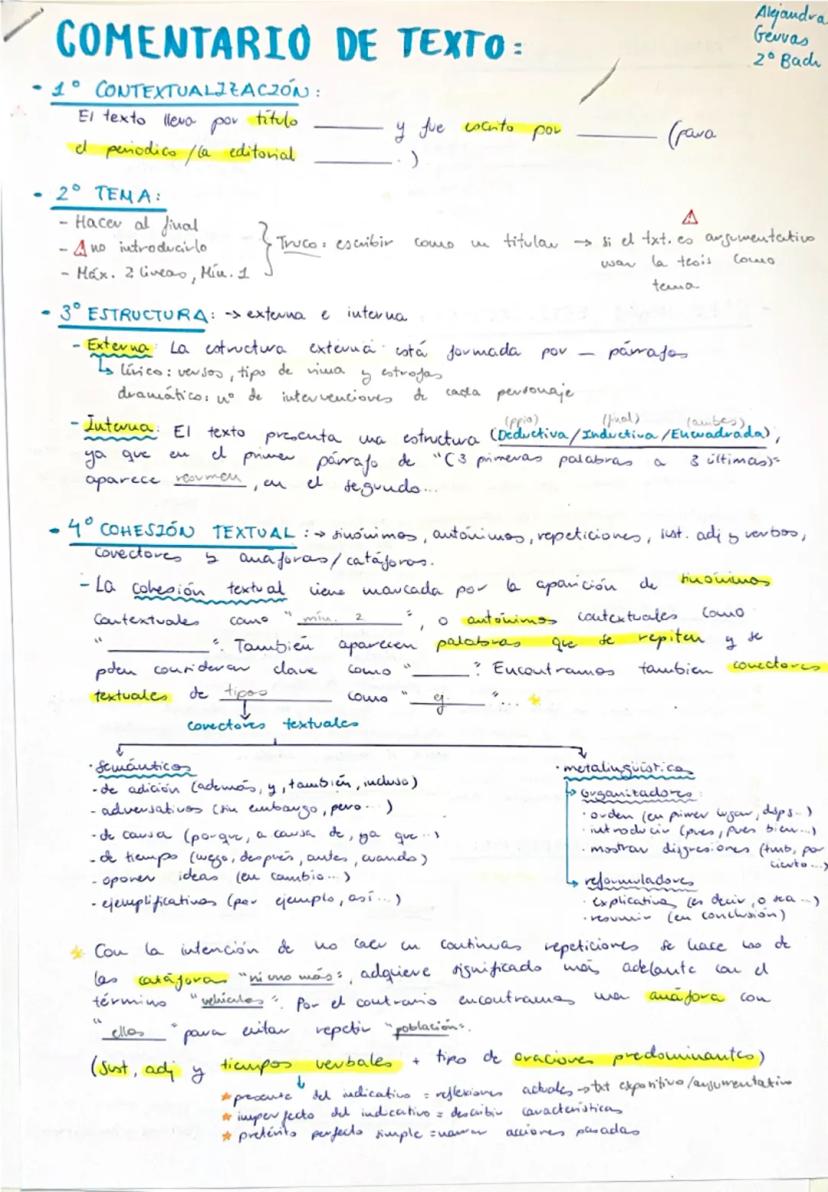 Alejandra
Gervas
2º Bach
COMENTARIO DE TEXTO:
- 1º CONTEXTUALIZACIÓN:
El texto lleva por título ______ y fue escrito por ______ (para
el periodico / la editorial ______.)
- 2º TEMA:
- Hacer al final
- ⚠ no introducirlo
- Máx. 2 líneas, Mín. 1
Truco: escribir como un titular → si el txt. es argumentativo
usar la tesis como
tema
- 3º ESTRUCTURA: → externa e interna
- Externa: La estructura externa está formada por _ párrafos
↳ lírico: versos, tipo de rima y estrofas
dramático: nº de intervenciones de cada personaje
(ppio) (final) (ambos)
- Interna: El texto presenta una estructura (Deductiva / Inductiva / Encuadrada),
ya que en el primer párrafo de "(3 primeras palabras a 3 últimas)"
aparece resumen, en el segundo...
- 4º COHESIÓN TEXTUAL: → sinónimos, antónimos, repeticiones, sust. adj y verbos,
conectores y anáforas / catáforas.
- La cohesión textual viene marcada por la aparición de sinónimos
contextuales como "mín. 2", o antónimos contextuales como
"______". También aparecen palabras que se repiten y se
pden considerar clave como "____". Encontramos tambien conectores
textuales de tipos como "ej"... *
conectores textuales
· Semánticos
- de adición (además, y, también, incluso)
- adversativos (sin embargo, pero...)
- de causa (porque, a causa de, ya que...)
- de tiempo (luego, después, antes, cuando)
- oponer ideas (en cambio...)
- ejemplificativos (por ejemplo, así...)
· metalingüísticos
→ organizadores:
· orden (en primer lugar, dsps..)
· introducir (pues, pues bien...)
· mostrar digresiones (tmb, por
cierto...)
→ reformuladores
· explicativa (es decir, o sea...)
· resumir (en conclusión)
* Con la intención de no caer en continuas repeticiones se hace uso de
las catáfora "ni uno más", adquiere significado más adelante con el
término "vehículos". Por el contrario encontramos una anáfora con
"ellos" para evitar repetir "población".
(Sust, adj y tiempos verbales + tipo de oraciones predominantes)
* presente del indicativo = reflexiones actuales → txt expositivo / argumentativo
* imperfecto del indicativo = describir características
* pretérito perfecto simple = narrar acciones pasadas